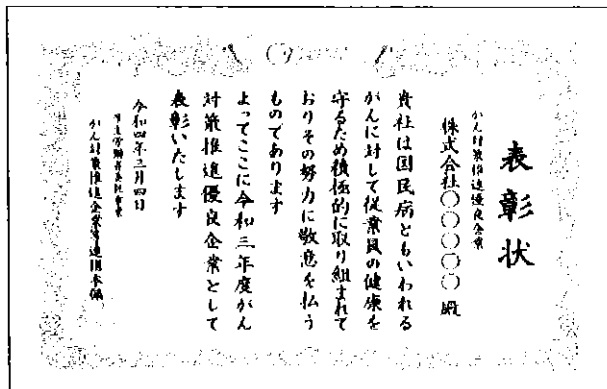 表彰状
がん対策推進優良企業
株式会社〇〇〇〇〇 殿
貴社は国民病ともいわれる
がんに対して従業員の健康を
守るため積極的に取り組まれて
おりその努力に敬意を払う
ものであります
よってここに令和三年度がん
対策推進優良企業として
表彰いたします
令和四年三月四日
厚生労働省委託事業
がん対策推進企業等連携本部